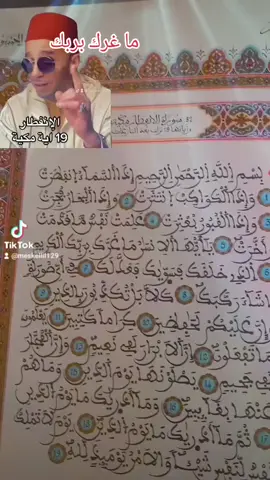 ما غرك بربك
الإنفطار
19 اية مكية
بسم الله الرحمن الرحيم إذا السماء انفطرت
وإذا الكواكب انتثرت وإذا البحار فجرت
وإذا القبور بعثرت علمت نفس ما قدمت
وأخرت يأيها الانسان ما غرك بربك الكريم
الذي خلقك فسويك فعدلك في أي صورة
شاء ركبك كلا بل تكذبون بالدين
وإن عليكم لحفظين كراما كتبين يعلمون
ما تفعلون إن الابرار لفي نعيم وإن الفجار
لفي جحيم يصلونها يوم الدين وما هم
عنها بغائبين وما أدريك ما يوم الدين
ثم ما أدريك ما يوم الدين يوم لا تملك
نفس لنفس شيئا والامر يومئذ لله
TikTok
@meskelid129